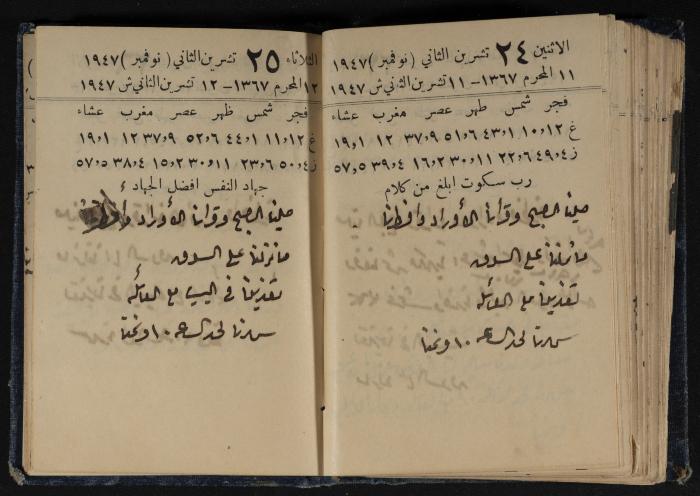 الاثنين ٢٤ تشرين الثاني (نوفمبر) ١٩٤٧
١١ المحرم ١٣٦٧ – ١١ تشرين الثاني ش ١٩٤٧
فجر شمس ظهر عصر مغرب عشاء
غ ١٢٫١٠ ١٫٤٣ ٦٫٥١ ٩٫٣٧ ١٢ ١٫١٩
ز ٤٫٤٩ ٦٫٢٢ ١١٫٣٠ ٢٫١٦ ٤٫٣٩ ٥٫٥٧
رب سكوت ابلغ من كلام
صلينا الصبح وقرأنا الأوراد وافطرنا
ما نزلنا على السوق
تغذينا مع العائلة
سهرنا لحد الساعة ١٠ ونمنا
الثلاثاء ٢٥ تشرين الثاني (نوفمبر) ١٩٤٧
١٢ المحرم ١٣٦٧ – ١٢ تشرين الثاني ش ١٩٤٧
فجر شمس ظهر عصر مغرب عشاء
غ ١٢٫١١ ١٫٤٤ ٦٫٥٢ ٩٫٣٧ ١٢ ١٫١٩
ز ٤٫٥٠ ٦٫٢٣ ١١٫٣٠ ٢٫١٥ ٤٫٣٨ ٥٫٥٧
جهاد النفس افضل الجهاد
صلينا الصبح وقرأنا الأوراد وافطرنا
ما نزلنا على السوق
تغذينا في البيت مع العائلة
سهرنا لحد الساعة ١٠ ونمنا